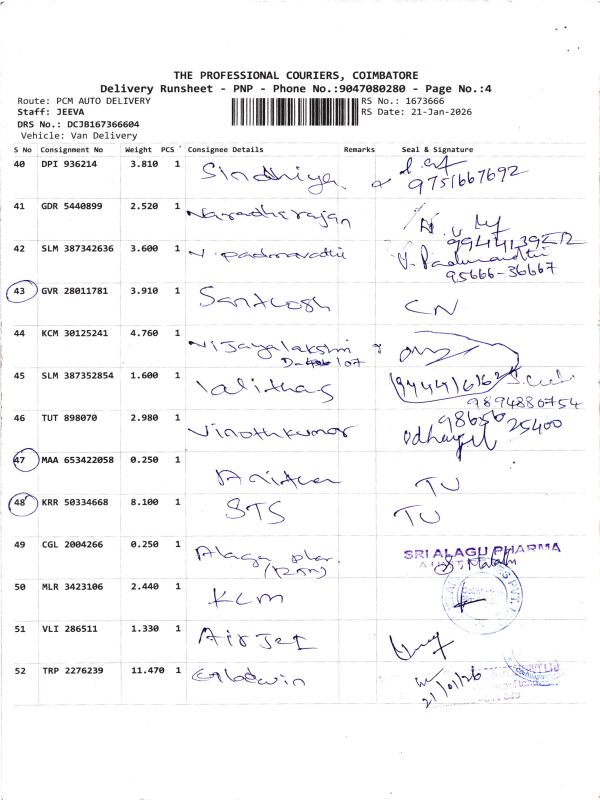 THE PROFESSIONAL COURIERS, COIMBATORE
Delivery Runsheet - PNP - Phone No.:9047080280 - Page No.:4
Route: PCM AUTO DELIVERY
RS No.: 1673666
Staff: JEEVA
RS Date: 21-Jan-2026
DRS No.: DCJB167366604
Vehicle: Van Delivery
S No Consignment No Weight PCS Consignee Details Remarks Seal & Signature
40 DPI 936214 3.810 1 Sindhiya 9751667692
41 GDR 5440899 2.520 1
42 SLM 387342636 3.600 1 V. padmavathi V. Padmavathi
95666-36667
43 GVR 28011781 3.910 1 Santhosh CN
44 KCM 30125241 4.760 1 Vijayalakshmi
45 SLM 387352854 1.600 1 lalitha
9894880754
46 TUT 898070 2.980 1 Vinothkumar 98656 25400
47 MAA 653422058 0.250 1 Anitha TU
48 KRR 50334668 8.100 1 STS TU
49 CGL 2004266 0.250 1 Alagu SRI ALAGU PHARMA
50 MLR 3423106 2.440 1 KCM
51 VLI 286511 1.330 1 AirJet
52 TRP 2276239 11.470 1 Godwin 21/01/26